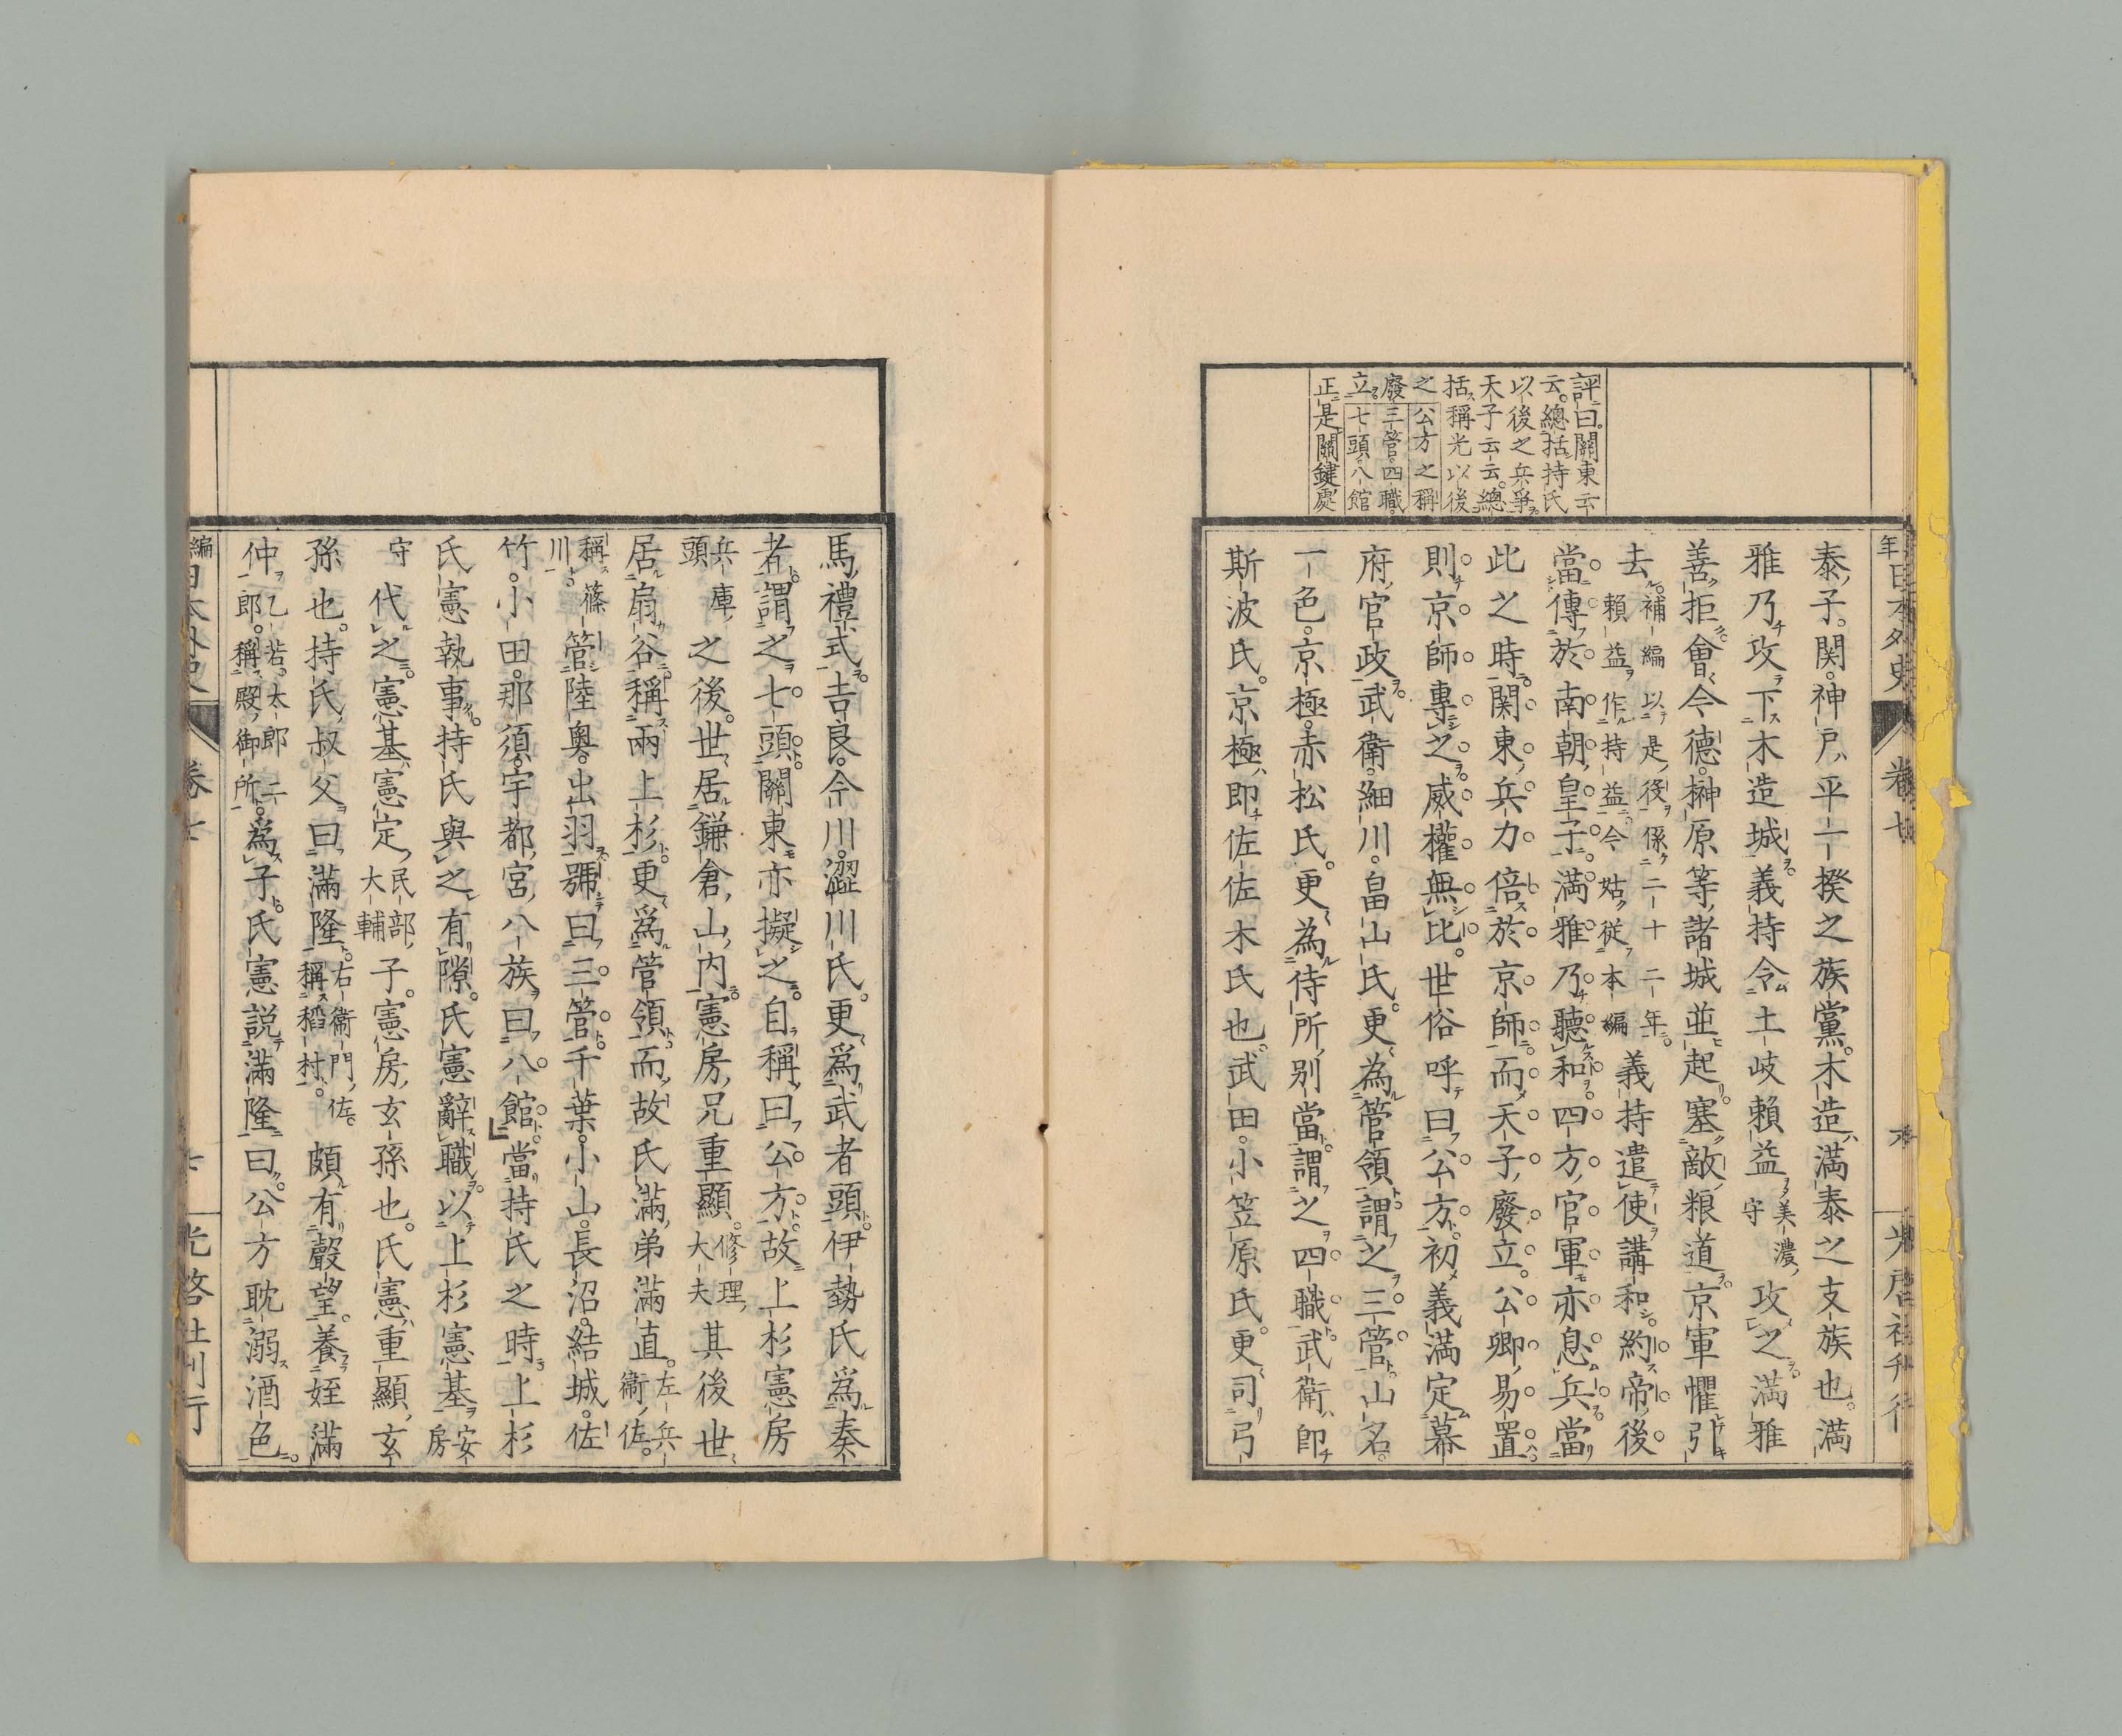 評曰關東云
云總括持氏
以後之兵爭
天子云云總
括稱光以後
之公方之稱
廢三管四職
立七頭八館
正是關鍵處
泰子関神戸平一揆之族黨木造滿泰之支族也滿
雅乃攻下木造城義持令土岐頼益美濃守攻之滿雅
善拒會今德榊原等諸城並起塞敵粮道京軍懼引
去補編以是役係二十二年頼益作持益今姑從本編義持遣使講和約帝後
當傳於南朝皇子滿雅乃聽和四方官軍亦息兵當
此之時関東兵力倍於京師而天子廢立公卿易置
則京師專之威權無比世俗呼曰公方初義滿定幕
府官政武衛細川畠山氏更為管領謂之三管山名
一色京極赤松氏更為侍所別當謂之四職武衛即
斯波氏京極即佐佐木氏也武田小笠原氏更司弓
卷七
馬禮式吉良今川澀川氏更爲武者頭伊勢氏爲奏
者謂之七頭關東亦擬之自稱曰公方故上杉憲房
兵庫頭之後世居鎌倉山内憲房兄重顯修理大夫其後世
居扇谷稱兩上杉更爲管領而故氏滿弟滿直左兵衛佐
稱篠川管陸奥出羽號曰三管千葉小山長沼結城佐
竹小田那須宇都宮八族曰八館當持氏之時上杉
氏憲執事持氏與之有隙氏憲辭職以上杉憲基安房
守代之憲基憲定民部大輔子憲房玄孫也氏憲重顯玄
孫也持氏叔父曰滿隆右衛門佐稱稻村頗有聲望養姪滿
仲乙若太郎二郎稱殿御所爲子氏憲説滿隆曰公方耽溺酒色
卷七
光啓社刊行